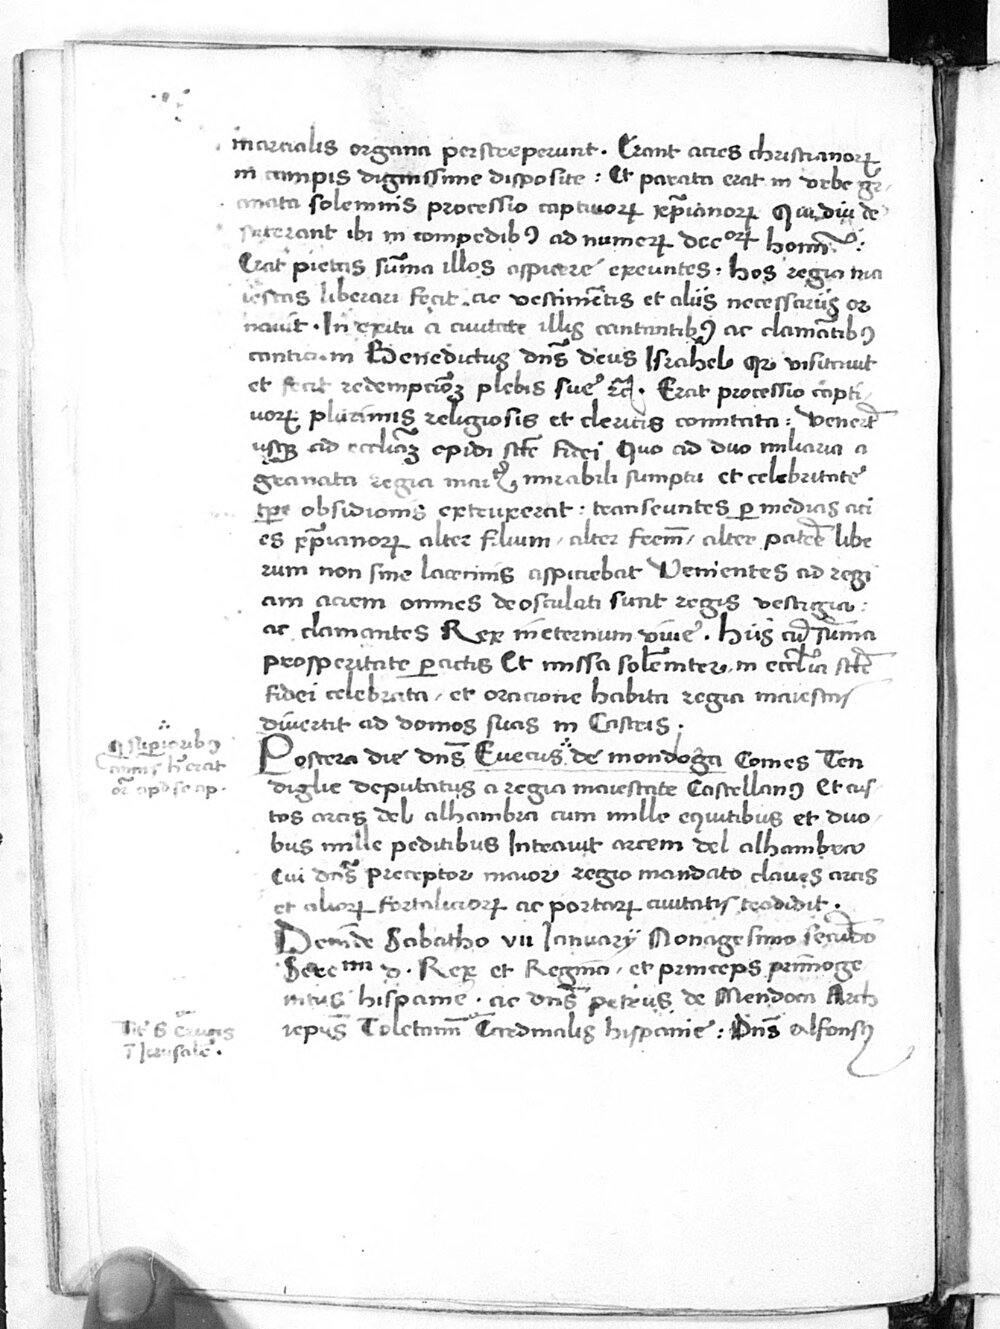 marcialis organa perstreperunt. Erant acies christianoꝝ
in campis dignissime disposite: Et parata erat in vrbe gr
anata solemnis processio captiuoꝝ xp̃ianoꝝ Qui diu de
terant ibi in compedibꝯ ad numeꝝ dccorꝝ hom̃
Erat pietas sũma illos aspicere exeuntes: hos regia ma
iestas liberari fecit ac vestimẽtis et aliis necessariis or
nauit. In exitu a ciuitate illis cantantibꝯ ac clamãtibꝯ
canticum Benedictus dñs deus Israhel qr visitauit
et fecit redempcioꝫ plebis sue r̃c. Erat processio capti
uoꝝ plurimis religiosis et clericis comitata: Venert̃
usqꝫ ad eccliãꝫ opidi stẽ fidei Quo ad duo miliaria a
granata regia mai mirabili sumptu et celebritate
tp̃e obsidionis extruxerat: transeuntes ꝑ medias aci
es xp̃ianoꝝ alter filium, alter frem̃, alter patrẽ libe
rum non sine lacrimis aspiciebat Venientes ad regi
am aciem omnes deosculati sunt regis vestigia:
ac clamantes Rex in eternum viue. hiis cũ sũma
prosperitate ꝑactis Et missa solẽniter in eccl̃ia stẽ
fidei celebrata, et oracione habita regia maiestas
diuertit ad domos suas in Castris.
Postera die dñs Euecus de mondoga Comes Ten
diglie deputatus a regia maiestate Castellanꝯ Et cus
tos arcis del alhambra cum mille equitibus et duo
bus mille peditibus Intrauit arcem del alhambra
Cui dñs preceptor maior regio mandato claues arcis
et alioꝝ fortalicioꝝ ac portaꝝ ciuitatis tradidit.
Deinde Sabatho vii Ianuarij Nonagesimo secũdo
Sere mi d. Rex et Regina, et princeps primoge
nitus hispanie. ac dñs petrus de Mendoca Arch
iepũs Toletanũ Cardinalis hispanie: Dñs Alfonsꝯ
ꝗ superioribꝯ
Tit̃ S Crucis
ĩ Jerusalẽ.